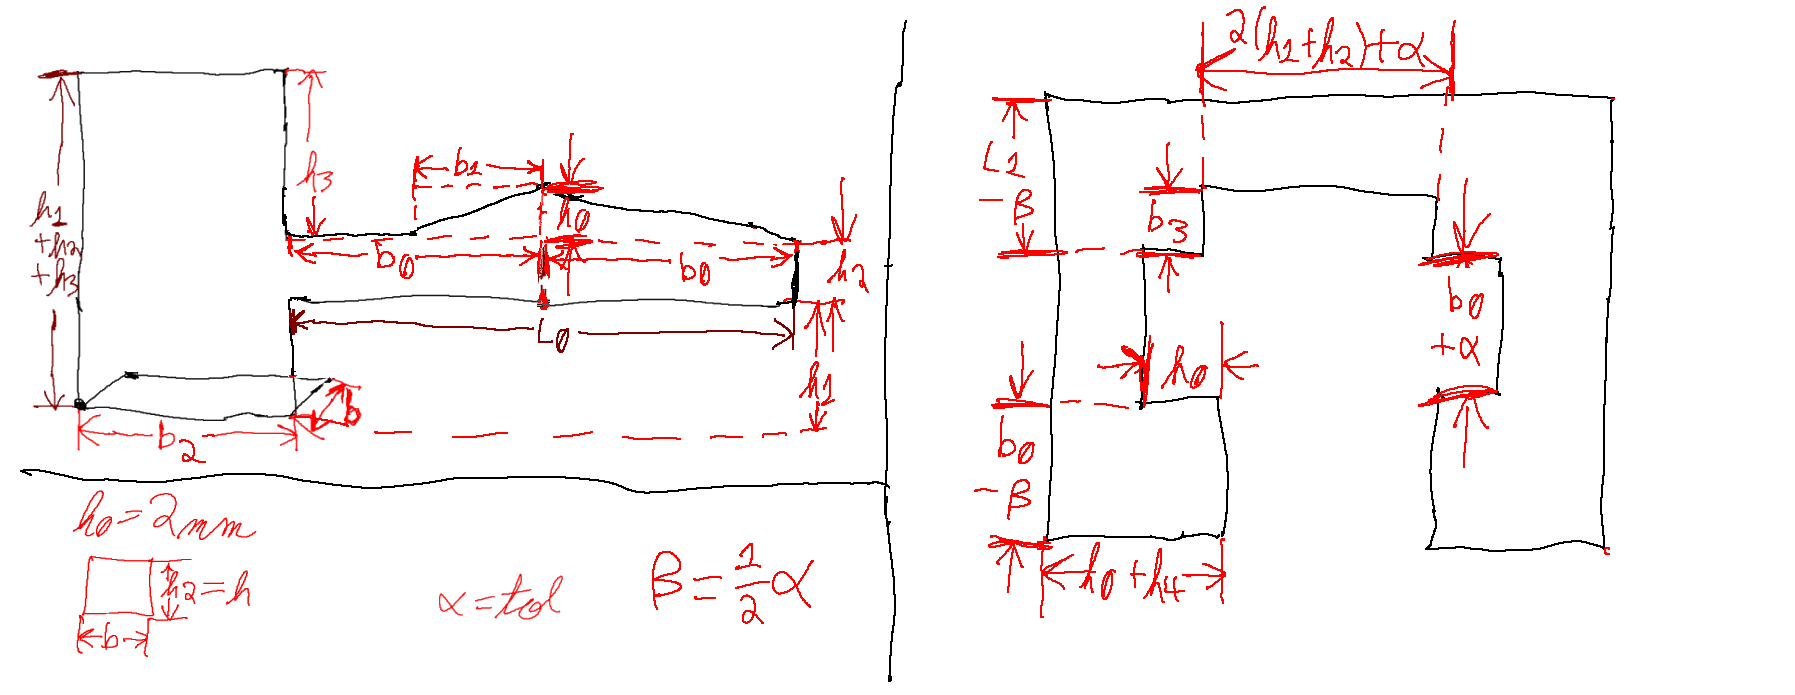 h1
+h2
+h3
h3
b1
h0
b0
b0
h2
L0
h1
b
b2
h0=2mm
h2=h
b
α=tol
β=1/2α
2(h1+h2)+α
L1
-β
b3
b0
+α
h0
b0
-β
h0+h4